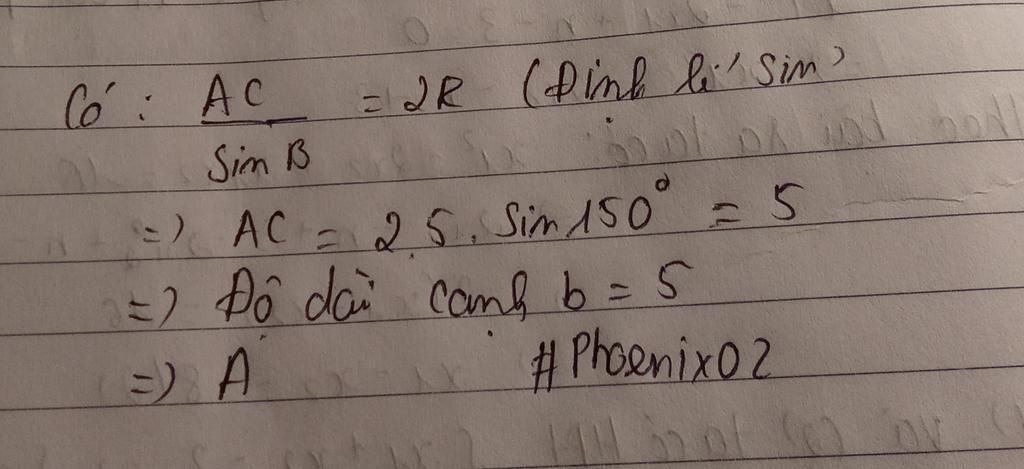 Có: AC / Sin B = 2R (Định lí Sin)
=) AC = 2.5. Sin 150° = 5
=) Độ dài cạnh b = 5
=) A #Phoenix02